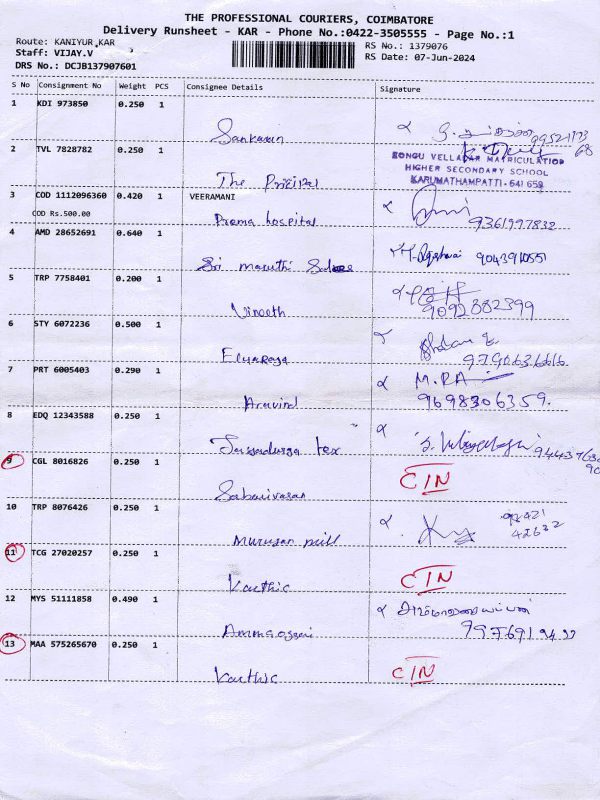 THE PROFESSIONAL COURIERS, COIMBATORE
Delivery Runsheet - KAR - Phone No.:0422-3505555 - Page No.:1
Route: KANIYUR,KAR
RS No.: 1379076
Staff: VIJAY.V
RS Date: 07-Jun-2024
DRS No.: DCJB137907601
S No Consignment No Weight PCS Consignee Details Signature
1 KDI 973850 0.250 1
Sankaran
2 TVL 7828782 0.250 1
KONGU VELLALAR MATRICULATION
HIGHER SECONDARY SCHOOL
KARUMATHAMPATTI - 641 659
The
3 COD 1112096360 0.420 1 VEERAMANI
COD Rs.500.00
Prema hospital 9361997832
4 AMD 28652691 0.640 1
Sri maruthi 9043910551
5 TRP 7758401 0.200 1
Vineeth 9092882399
6 STY 6072236 0.500 1
9790636616
7 PRT 6005403 0.290 1
M.RA
Aravind 9698306359.
8 EDQ 12343588 0.250 1
tex
9 CGL 8016826 0.250 1 CIN
Sabarivasan
10 TRP 8076426 0.250 1
Murugan mill
11 TCG 27020257 0.250 1 CIN
Karthic
12 MYS 51111858 0.490 1
13 MAA 575265670 0.250 1 CIN
Karthic